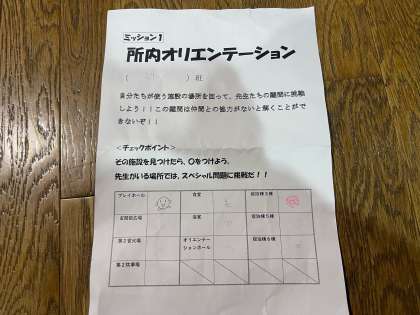 ミッション1
所内オリエンテーション
( ) 班
自分たちが使う施設の場所を回って、先生たちの難問に挑戦
しよう!!この難問は仲間との協力がないと解くことがで
きないぞ!!
<チェックポイント>
その施設を見つけたら、○をつけよう。
先生がいる場所では、スペシャル問題に挑戦だ!!
プレイホール 食堂 宿泊棟3棟
玄関前広場 浴室 宿泊棟5棟
第2営火場 オリエンテー
ションホール 宿泊棟6棟
第2炊事場